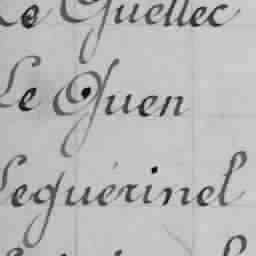 Le Guellec
Le Guen
Leguérinel